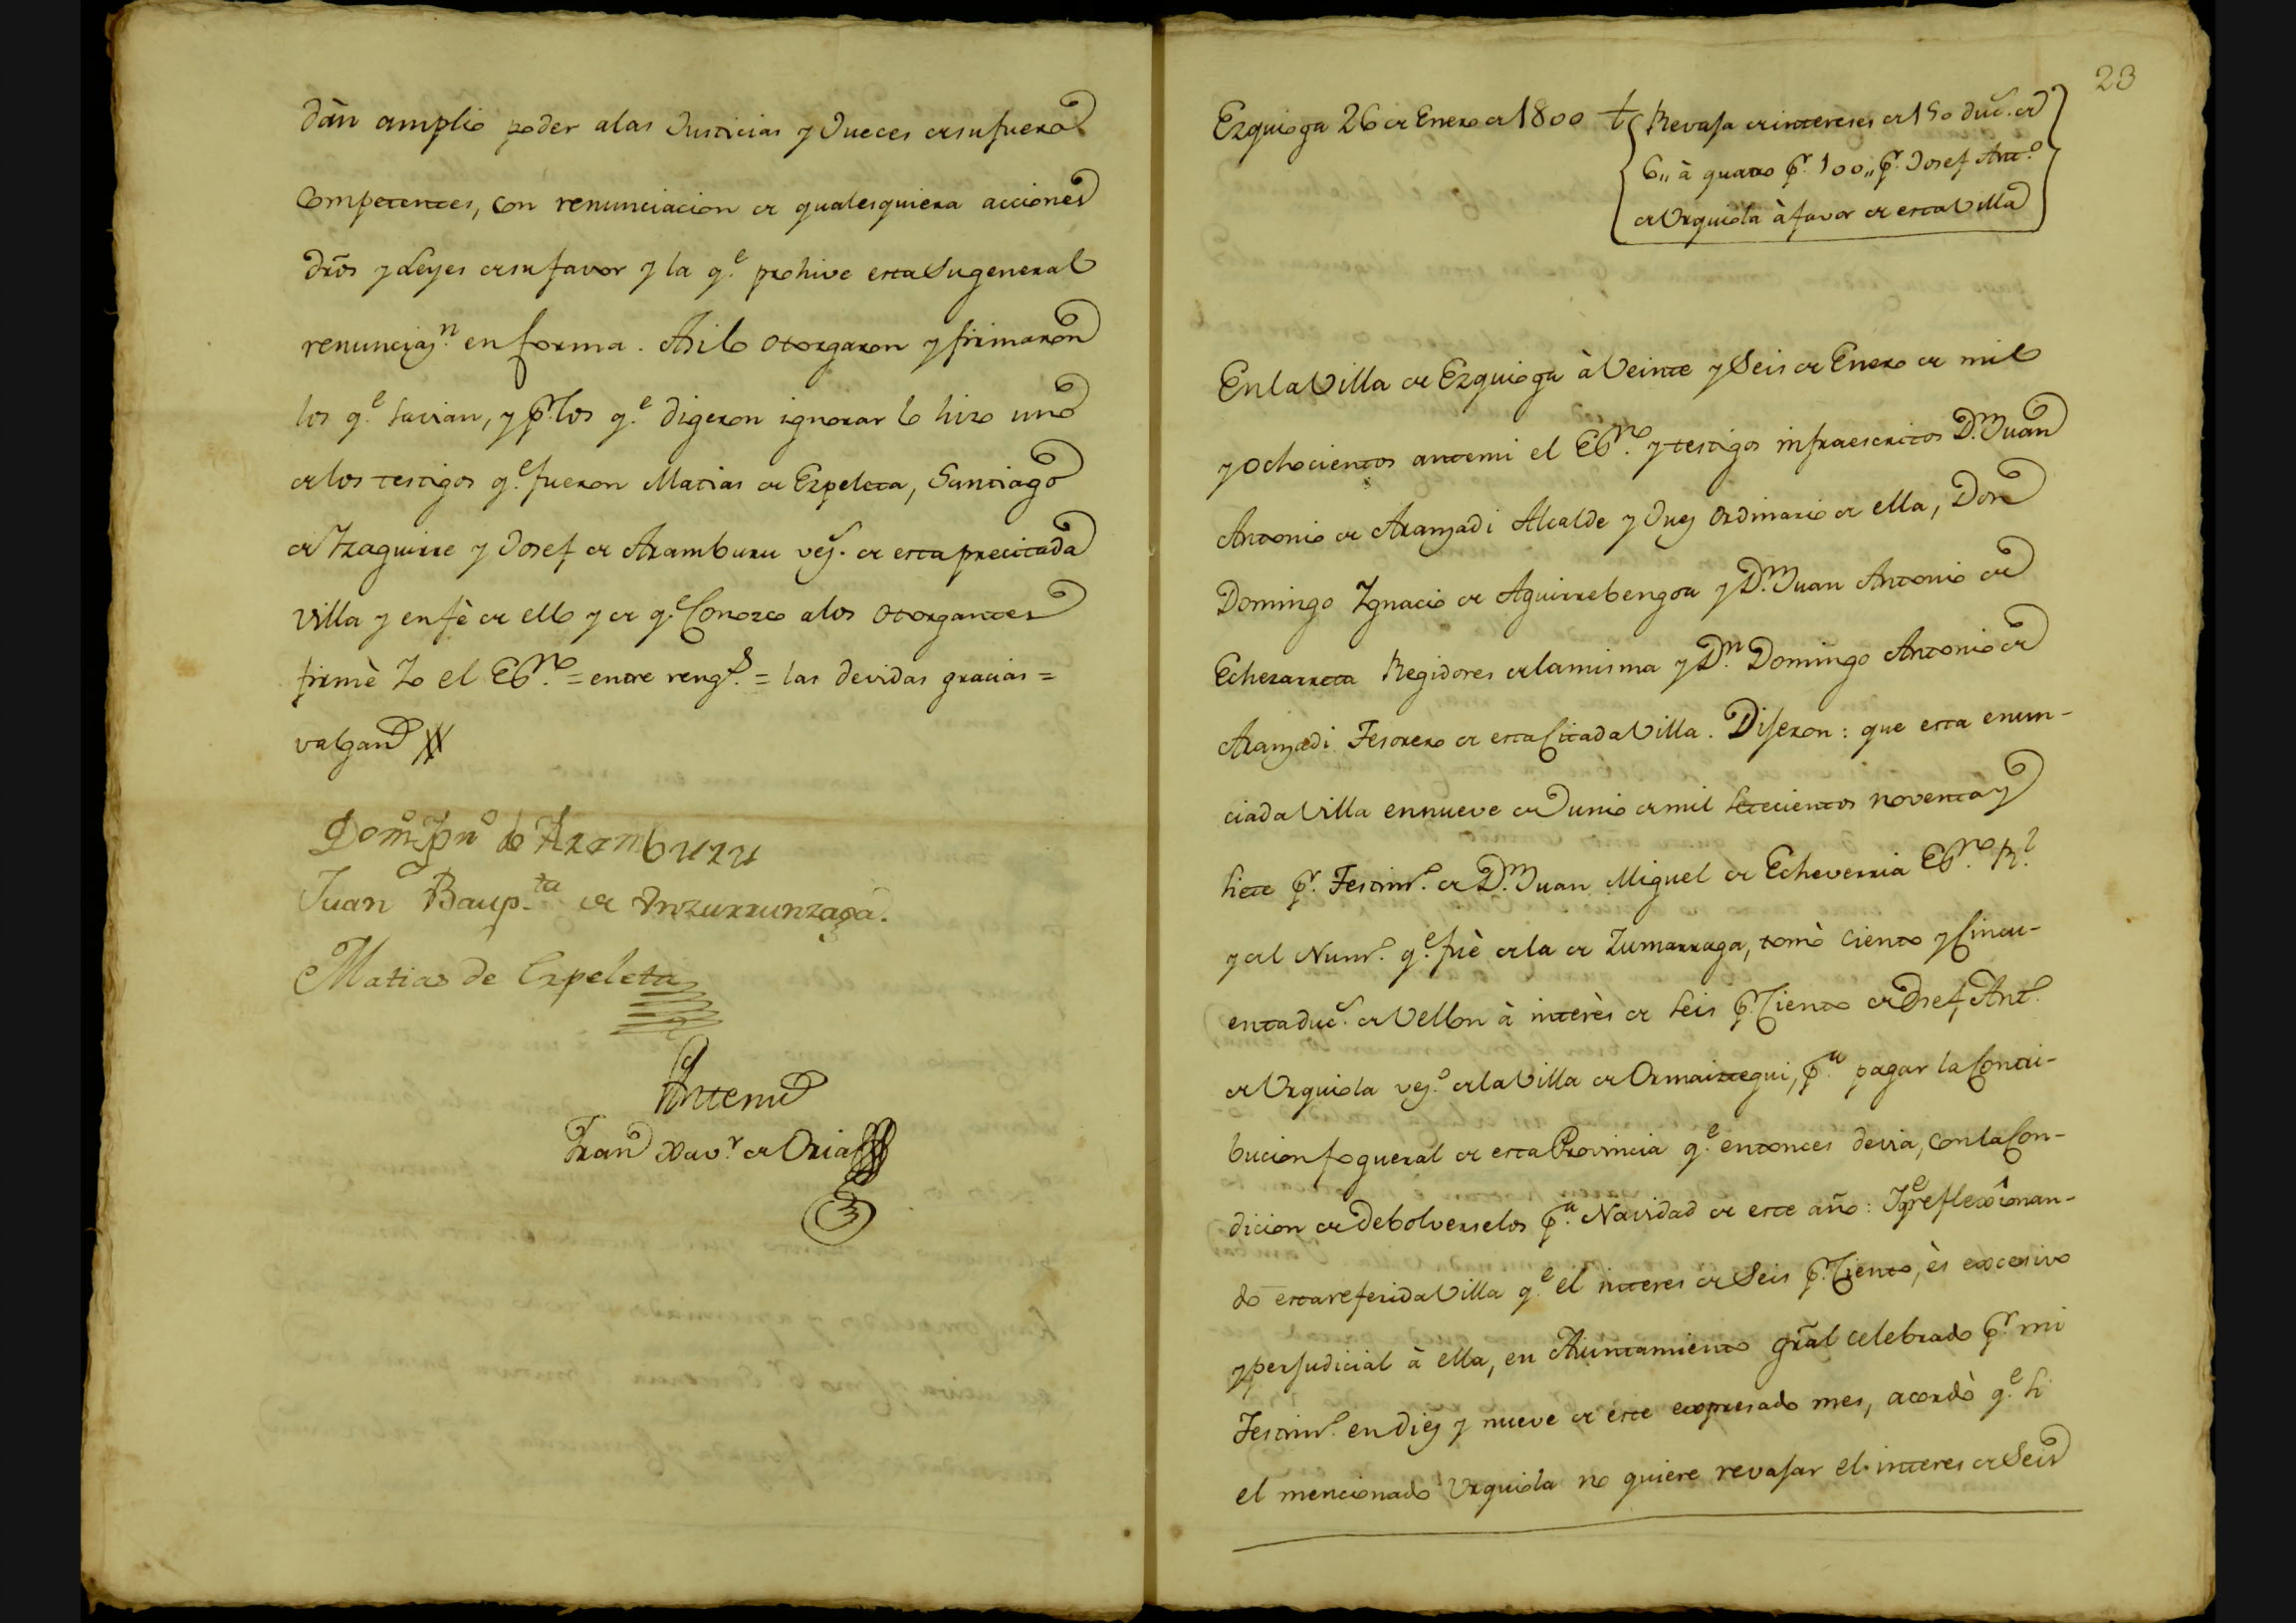 dàn amplio poder a las Justicias y Jueces de su fuero
Competentes, con renunciacion de qualesquiera acciones
dr̃os y Leyes de su favor y la q.e prohive esta Su general
renunciaz.n en forma. Asi lo otorgaron y firmaron
los q.e savian, y p.r los q.e digeron ignorar lo hizo uno
de los testigos q.e fueron Matias de Ezpeleta, Santiago
de Yzaguirre y Josef de Aramburu vez.s de esta precitada
Villa y en fè de ello y de q.e Conozco a los otorgantes
firmè Yo el Esno. = entre reng.s = las devidas gracias =
valgan
Dom.o Ygn.o de Aramburu
Juan Baup.ta de Inzurrunzaga.
Matias de Ezpeleta
Antemi
Fran.co Xav.r de Oria
23
Ezquioga 26 de Enero de 1800 † Revaja de intereses de 150 duc.s de
6,, à quatro p.r 100,, p.r Josef Ant.o
de Urquiola à favor de esta Villa
En la Villa de Ezquioga à Veinte y Seis de Enero de mil
y ochocientos ante mi el Esno. y testigos infraescritos D.n Juan
Antonio de Aranzadi Alcalde y Juez ordinario de ella, Don
Domingo Ygnacio de Aguirrebengoa y D.n Juan Antonio de
Echezarreta Regidores de la misma y D.n Domingo Antonio de
Aranzadi Tesorero de esta Citada Villa. Dijeron: que esta enun-
ciada Villa en nueve de Junio de mil setecientos noventa y
siete p.r Testim.o de D.n Juan Miguel de Echeverria Esno. R.l
y del Num.o q.e fuè de la de Zumarraga, tomò ciento y Cincu-
enta duc.s de Vellon à interès de seis p.r Ciento de Josef Ant.o
de Urquiola vez.o de la Villa de Ormaiztegui, p.a pagar la Contri-
bucion fogueral de esta Provincia q.e entonces devia, con la Con-
dicion de Debolverselos p.a Navidad de este año: Y q.e reflexîonan-
do esta referida Villa q.e el interes de Seis p.r Ciento, ès excesivo
y perjudicial à ella, en Aiuntamiento gr̃al celebrado p.r mi
Testim.o en diez y nueve de este expresado mes, acordò q.e si
el mencionado Urquiola no quiere revajar el interes de Seis